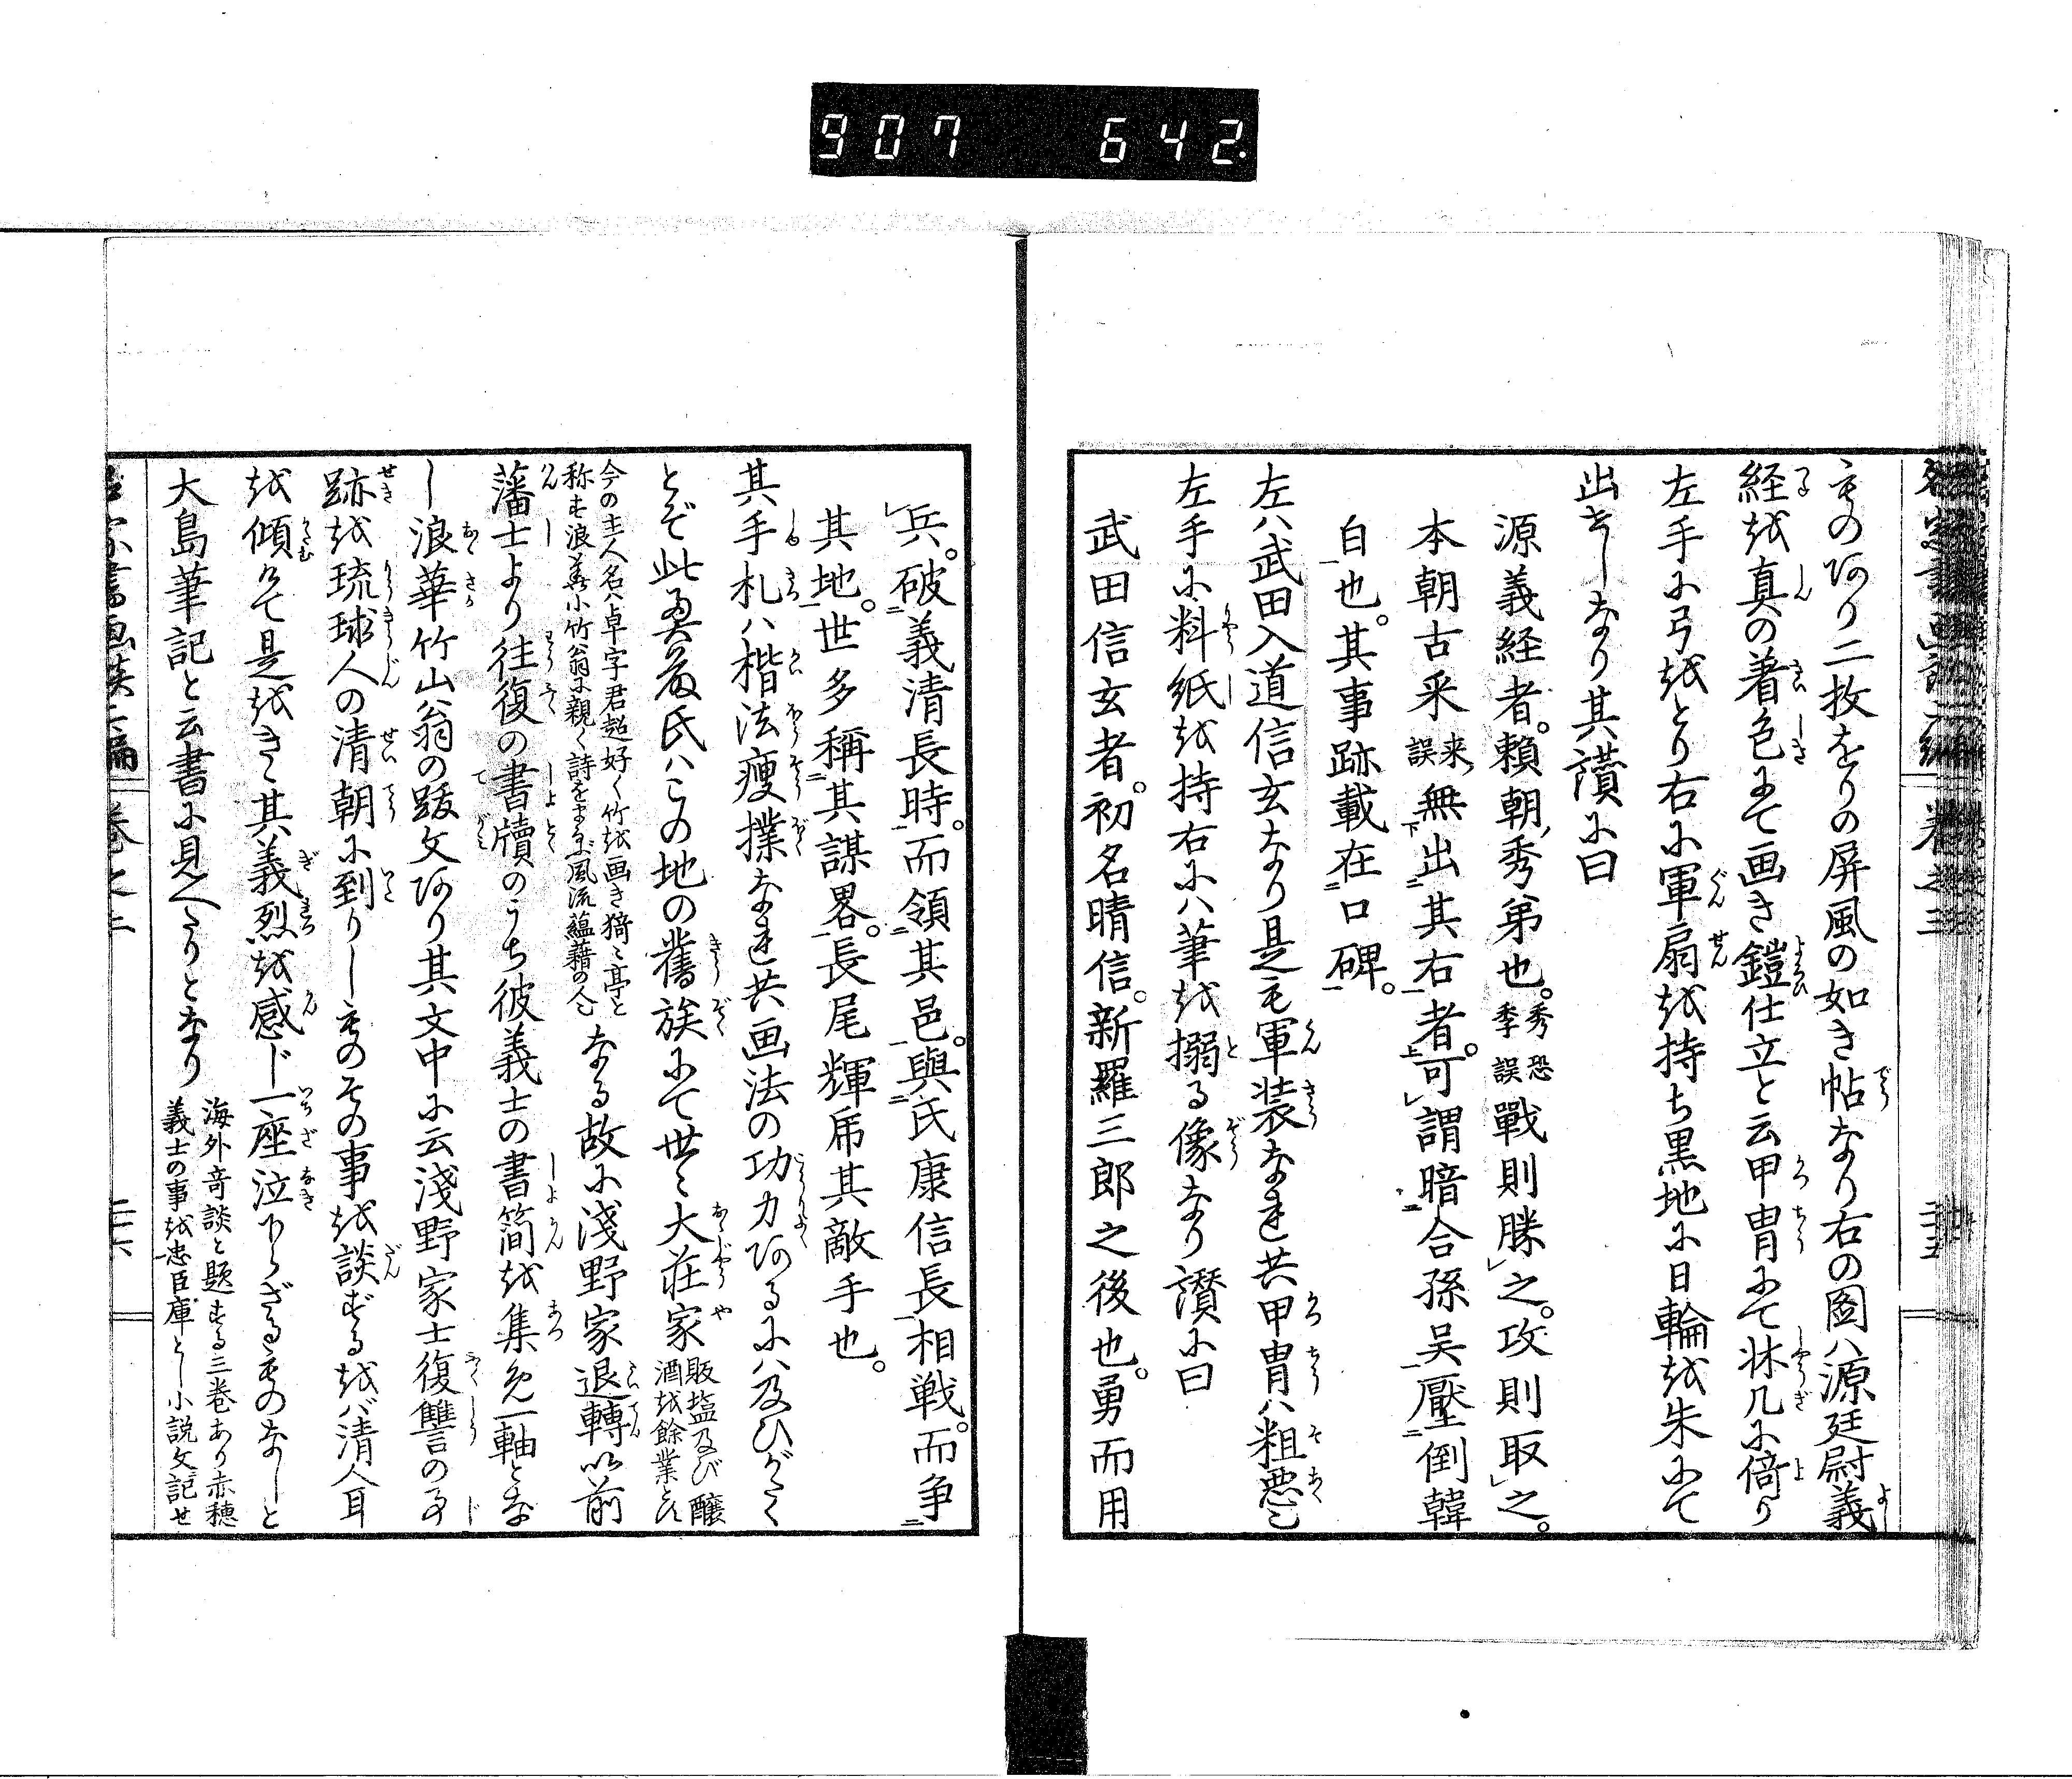 907 642
ものあり二枚をりの屏風の如き帖なり右の図ハ源廷尉義
経を真の着色にて画き鎧仕立と云甲冑にて牀几に倚り
左手に弓をとり右に軍扇を持ち黒地に日輪を朱にて
出せしなり其讃に曰
源義経者。頼朝,秀弟也。秀恐季誤戦則勝」之。攻則取」之。
本朝古釆来,誤無下出二其右一者上。可」謂暗二合孫吴一壓二倒韓
白一也。其事跡載在二口碑一。
左ハ武田入道信玄なり是も軍装なれ共甲冑ハ粗悪也
左手に料紙を持右にハ筆を搦る像なり讃に曰
武田信玄者。初名晴信。新羅三郎之後也。勇而用
」兵。破二義清長時一。而領二其邑一。與二氏康信長一相戦。而争二
其地一。世多稱二其謀畧一。長尾輝乕其敵手也。
其手札ハ楷法痩撲なれ共画法の功力あるにハ及ひがたく
とぞ此 氏ハこの地の舊族にて世〻大荘家販塩及び醸酒を餘業とし
今の主人名ハ卓字君超好く竹を画き猗〻亭と称す浪華小竹翁に親く詩をまなぶ風流蘊藉の人也なる故に淺野家退轉以前
藩士より往復の書牘のうち彼義士の書簡を集め一軸とな
し浪華竹山翁の跋文あり其文中に云淺野家士復讐の事
跡を琉球人の清朝に到りしものその事を談ずるを バ清人耳
を傾けて是をきゝ其義烈を感じ一座泣下らざるものなしと
大島筆記と云書に見へたりとなり海外奇談と題する三巻あり赤穂義士の事を忠臣庫とし小説文記せ